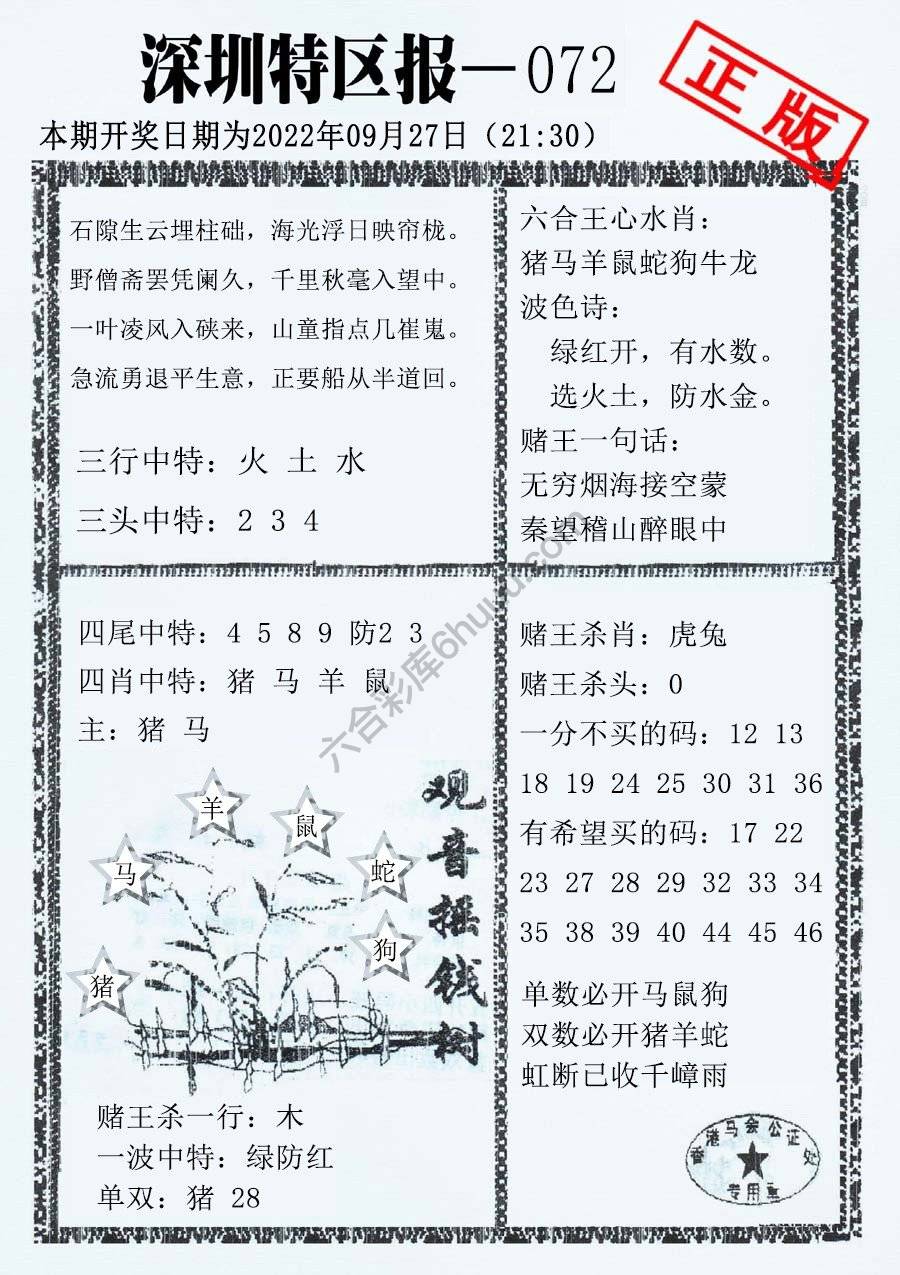 深圳特区报—072
正版
本期开奖日期为2022年09月27日（21:30）
石隙生云埋柱础，海光浮日映帘栊。
野僧斋罢凭阑久，千里秋毫入望中。
一叶凌风入硖来，山童指点几崔嵬。
急流勇退平生意，正要船从半道回。
三行中特：火 土 水
三头中特：2 3 4
六合王心水肖：
猪马羊鼠蛇狗牛龙
波色诗：
绿红开，有水数。
选火土，防水金。
赌王一句话：
无穷烟海接空蒙
秦望稽山醉眼中
四尾中特：4 5 8 9 防2 3
四肖中特：猪 马 羊 鼠
主：猪 马
观音摇钱树
羊
鼠
马
蛇
狗
猪
赌王杀一行：木
一波中特：绿防红
单双：猪 28
赌王杀肖：虎兔
赌王杀头：0
一分不买的码：12 13
18 19 24 25 30 31 36
有希望买的码：17 22
23 27 28 29 32 33 34
35 38 39 40 44 45 46
单数必开马鼠狗
双数必开猪羊蛇
虹断已收千嶂雨
香港马会公证处
专用章
六合彩库6huuu.com